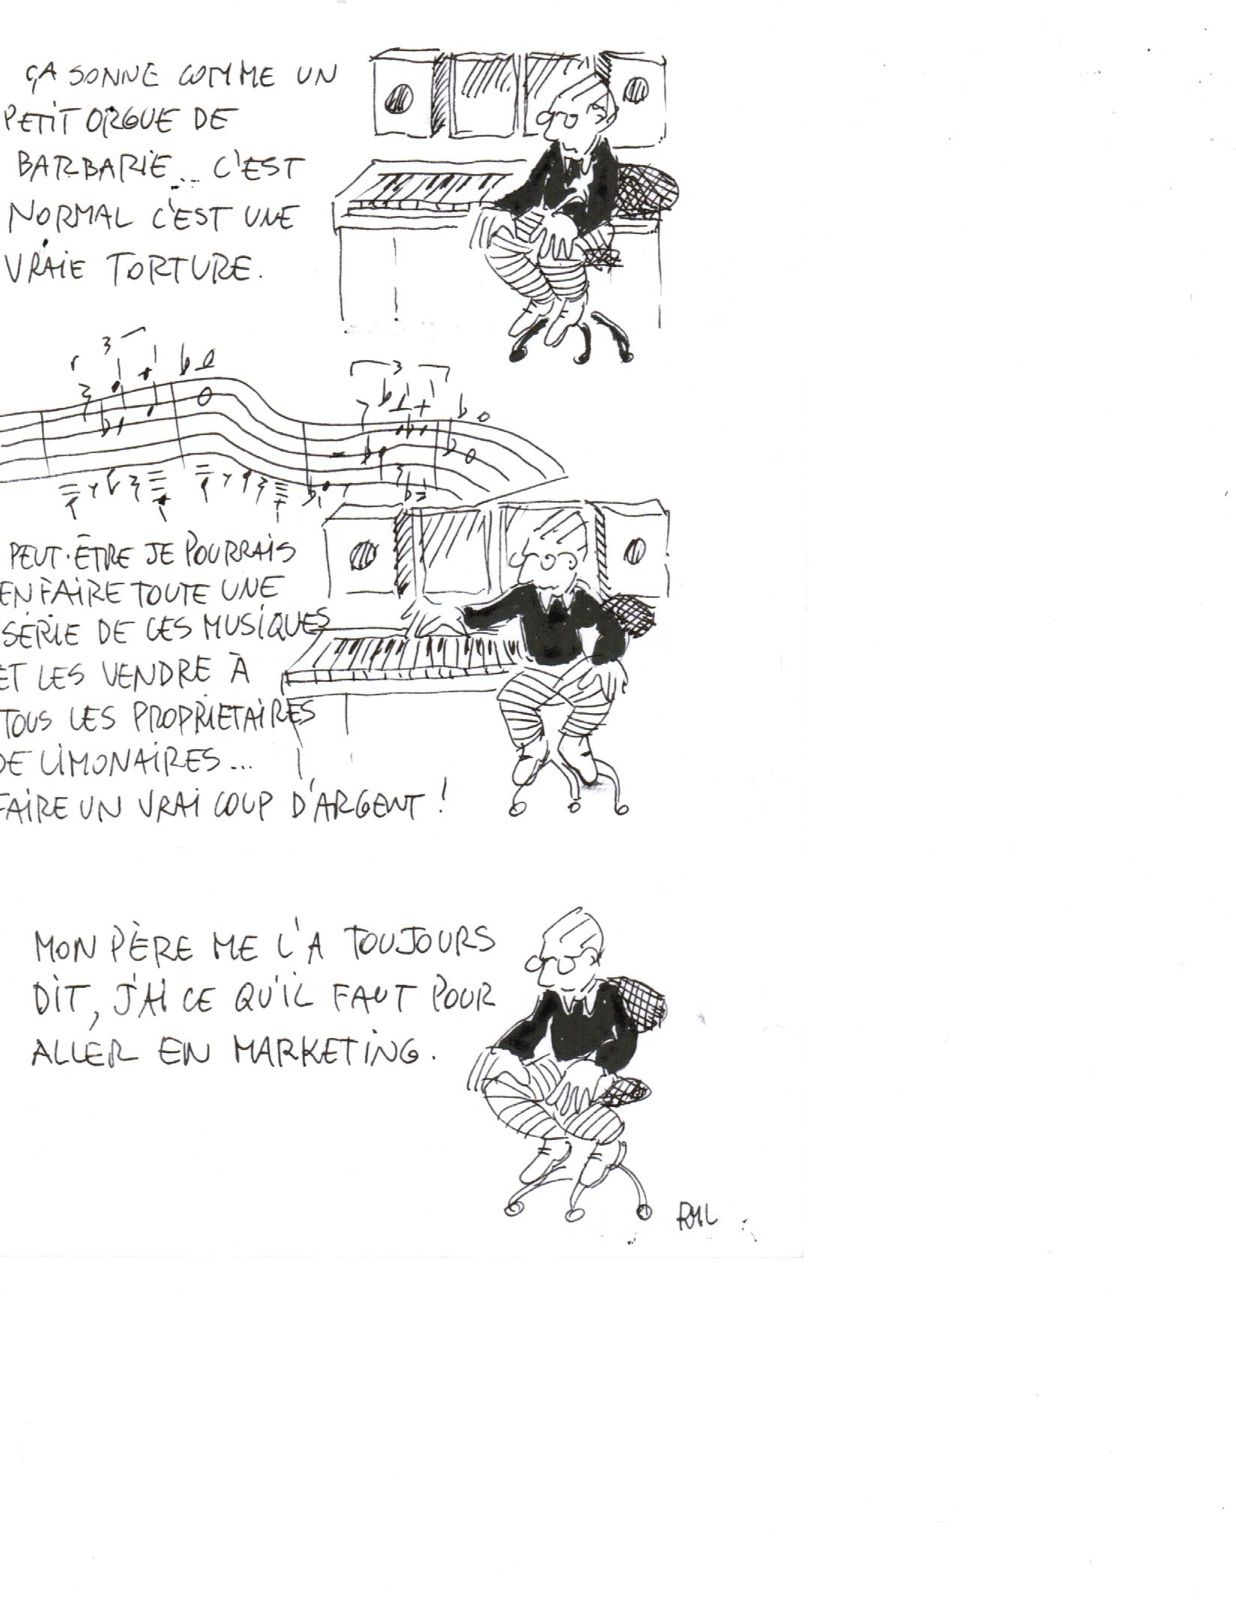 ÇA SONNE COMME UN
PETIT ORGUE DE
BARBARIE... C'EST
NORMAL C'EST UNE
VRAIE TORTURE.
3
3
PEUT-ÊTRE JE POURRAIS
EN FAIRE TOUTE UNE
SÉRIE DE CES MUSIQUES
ET LES VENDRE À
TOUS LES PROPRIETAIRES
DE LIMONAIRES...
FAIRE UN VRAI COUP D'ARGENT !
MON PÈRE ME L'A TOUJOURS
DIT, J'AI CE QU'IL FAUT POUR
ALLER EN MARKETING.